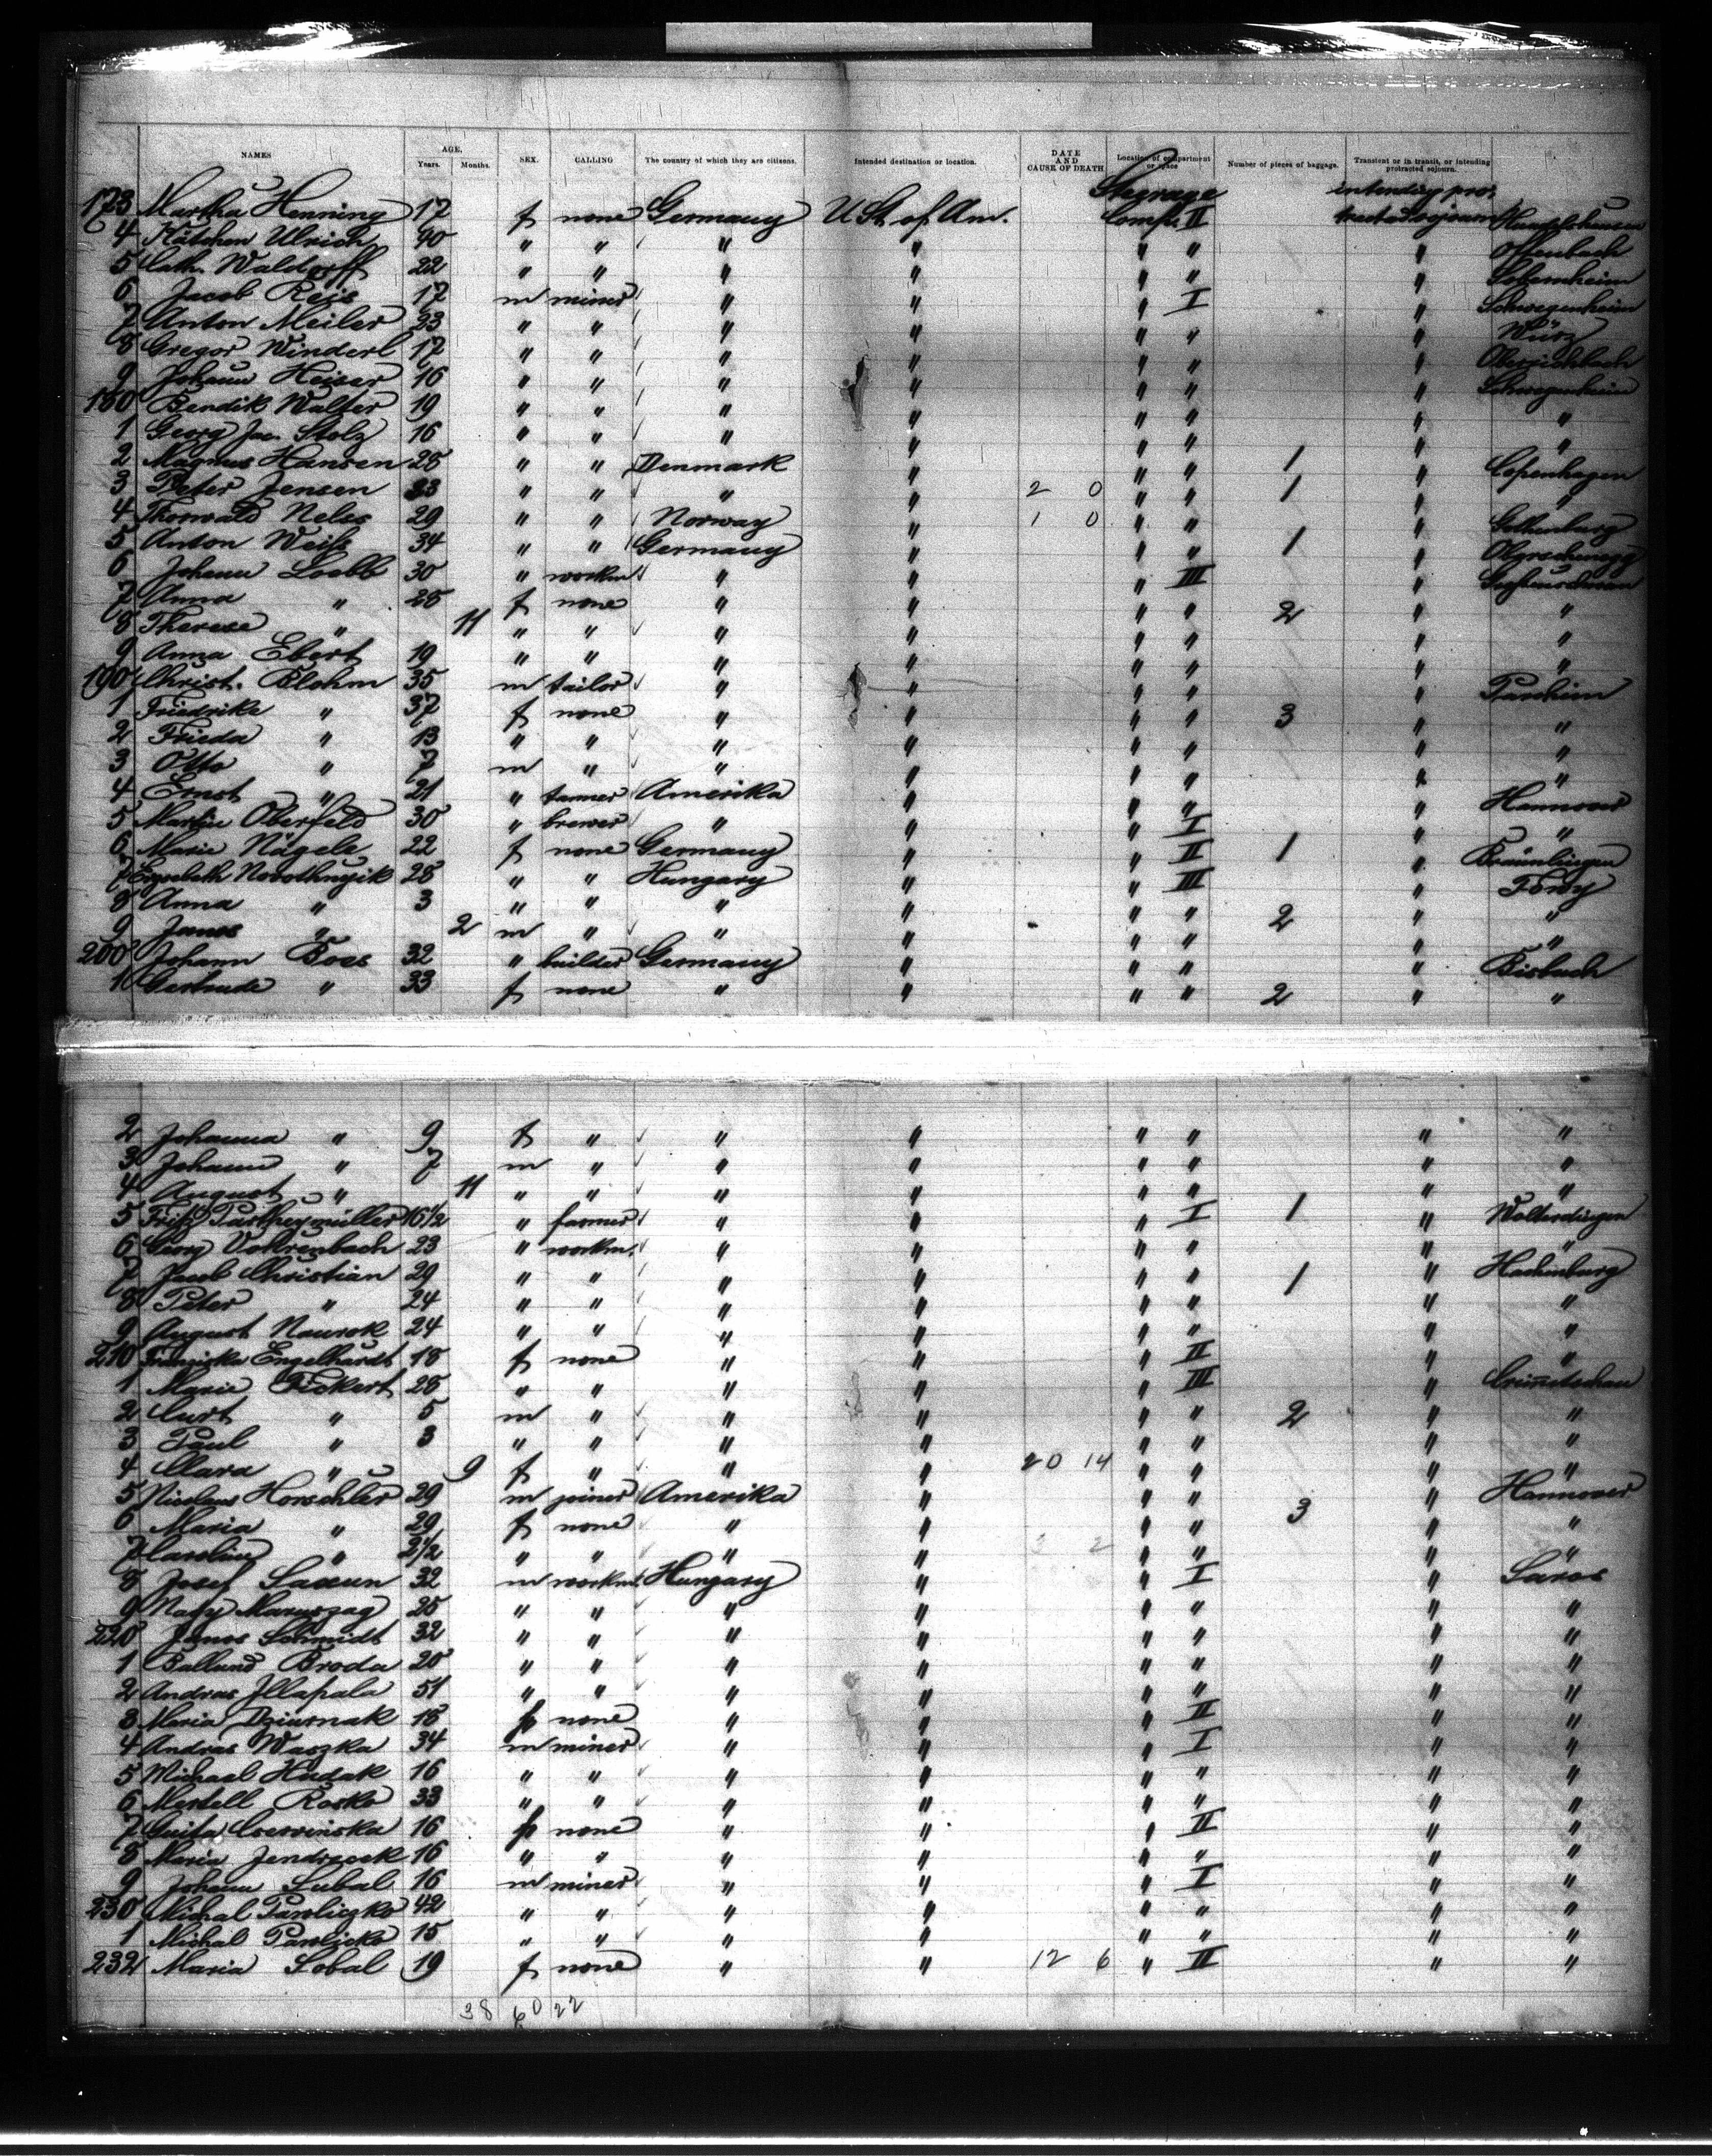 NAMES AGE. Years. Months. SEX. CALLING The country of which they are citizens. Intended destination or location. DATE AND CAUSE OF DEATH Location of compartment or space Number of pieces of baggage. Transient or in transit, or intending protracted sojourn.
Steerage intending pro-
173 Martha Henning 17 f none Germany U St. of Am. Comp. II tracted sojourn
4 Kätchen Ulrich 40 f " " " " " " Offenbach
5 Cath. Waldorff 22 " " " " " " "
6 Jacob Reis 17 m miner " " " I " Schwegenheim
7 Anton Meiler 23 " " " " " " " Würz
8 Gregor Winderl 17 " " " " " " "
9 Johann Heiser 16 " " " " " " " Schwegenheim
180 Bendik Walter 19 " " " " " " " "
1 Georg Jac. Stolz 16 " " " " " " " "
2 Magnus Hansen 28 " " Denmark " " " 1 " Copenhagen
3 Peter Jensen 23 " " " " 2 0 " " 1 " "
4 Thorwald Nelss 29 " " Norway " 1 0 " " " Gothenburg
5 Anton Weiß 34 " " Germany " " " 1 "
6 Johann Loebb 30 " workm " " " III "
7 Anna " 28 f none " " " " 2 " "
8 Therese " 11 " " " " " " " "
9 Anna Ebert 19 " " " " " " " "
190 Christ. Blohm 35 m tailor " " " " " Parchim
1 Friedrike " 37 f none " " " " 3 " "
2 Frieda " 13 " " " " " " " "
3 Otto " 7 m " " " " " " "
4 Ernst " 21 " tanner Amerika " " " " Hannover
5 Martin Oberfeld 30 " brewer " " " I " "
6 Marie Nägele 22 f none Germany " " II 1 " Bräunlingen
7 Erzsebeth Novothnyik 28 " " Hungary " " III "
8 Anna " 3 " " " " " " 2 " "
9 Janos " 2 m " " " " " " "
200 Johann Boes 32 " builder Germany " " " " Bisbach
1 Gertrude " 33 f none " " " " 2 " "
2 Johanna " 9 f " " " " " " "
3 Johann " 7 m " " " " " " "
4 August " 11 " " " " " " " "
5 Fritz Partheymüller 16 1/2 " farmer " " " I 1 " Wolterdingen
6 Georg Vohrenbach 23 " workm. " " " " " "
7 Jacob Christian 29 " " " " " " 1 " Hachenburg
8 Peter " 24 " " " " " " " "
9 August Naurok 24 " " " " " " " "
210 Franziska Engelhardt 18 f none " " " II " "
1 Marie Fickert 28 " " " " " III " Crimmitschau
2 Curt " 5 m " " " " " 2 " "
3 Paul " 3 " " " " " " " "
4 Clara " 9 f " " " 20 14 " " " "
5 Nicolaus Horschler 29 m joiner Amerika " " " " Hannover
6 Maria " 29 f none " " " " 3 " "
7 Caroline " 2 1/2 " " " " 3 2 " " " "
8 Josef 32 m workm. Hungary " " I " Saros
9 Nagy 25 " " " " " " " "
220 Janos Schmidt 32 " " " " " " " "
1 Broda 20 " " " " " " " "
2 Andras 51 " " " " " " " "
3 Maria Dziurnak 18 f none " " " II " "
4 Andras Waszka 34 m miner " " " I " "
5 Michael Hudak 16 " " " " " " " "
6 Rosko 33 " " " " " " " "
7 16 f none " " " II " "
8 Maria Jendrzeek 16 " " " " " " " "
9 Johann Subal 16 m miner " " " I " "
230 Michal Pawliczko 42 " " " " " " " "
1 Michal Pawlicko 15 " " " " " " " "
232 Maria Sobal 19 f none " " 12 6 " II " "
38 60 22